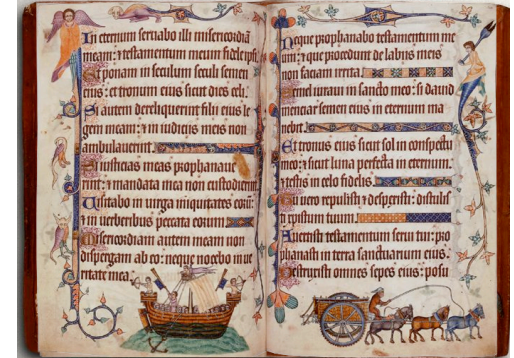 In eternum servabo illi misericordiã
meam: ⁊ testamentum meum fidele ipsi
Et ponam in seculum seculi semen
eius: et tronum eius sicut dies celi.
Si autem dereliquerint filii eius le
gem meam: ⁊ in iudiciis meis non
ambulaverint.
Si iusticias meas prophanave
rint: ⁊ mandata mea non custodierint.
Visitabo in virga iniquitates eorũ:
⁊ in verberibus peccata eorum
Misericordiam autem meam non
dispergam ab eo: neque nocebo in ve
ritate mea.
Neque prophanabo testamentum me
um: ⁊ que procedunt de labiis meis
non faciam irrita.
Semel iuravi in sancto meo: si david
menciar semen eius in eternum ma
nebit.
Et tronus eius sicut sol in conspectu
meo: ⁊ sicut luna perfecta in eternum.
⁊ testis in celo fidelis.
Tu vero repulisti ⁊ despexisti: distulisti
xpistum tuum.
Avertisti testamentum servi tui: pro
phanasti in terra sanctuarium eius.
Destruxisti omnes sepes eius: posu